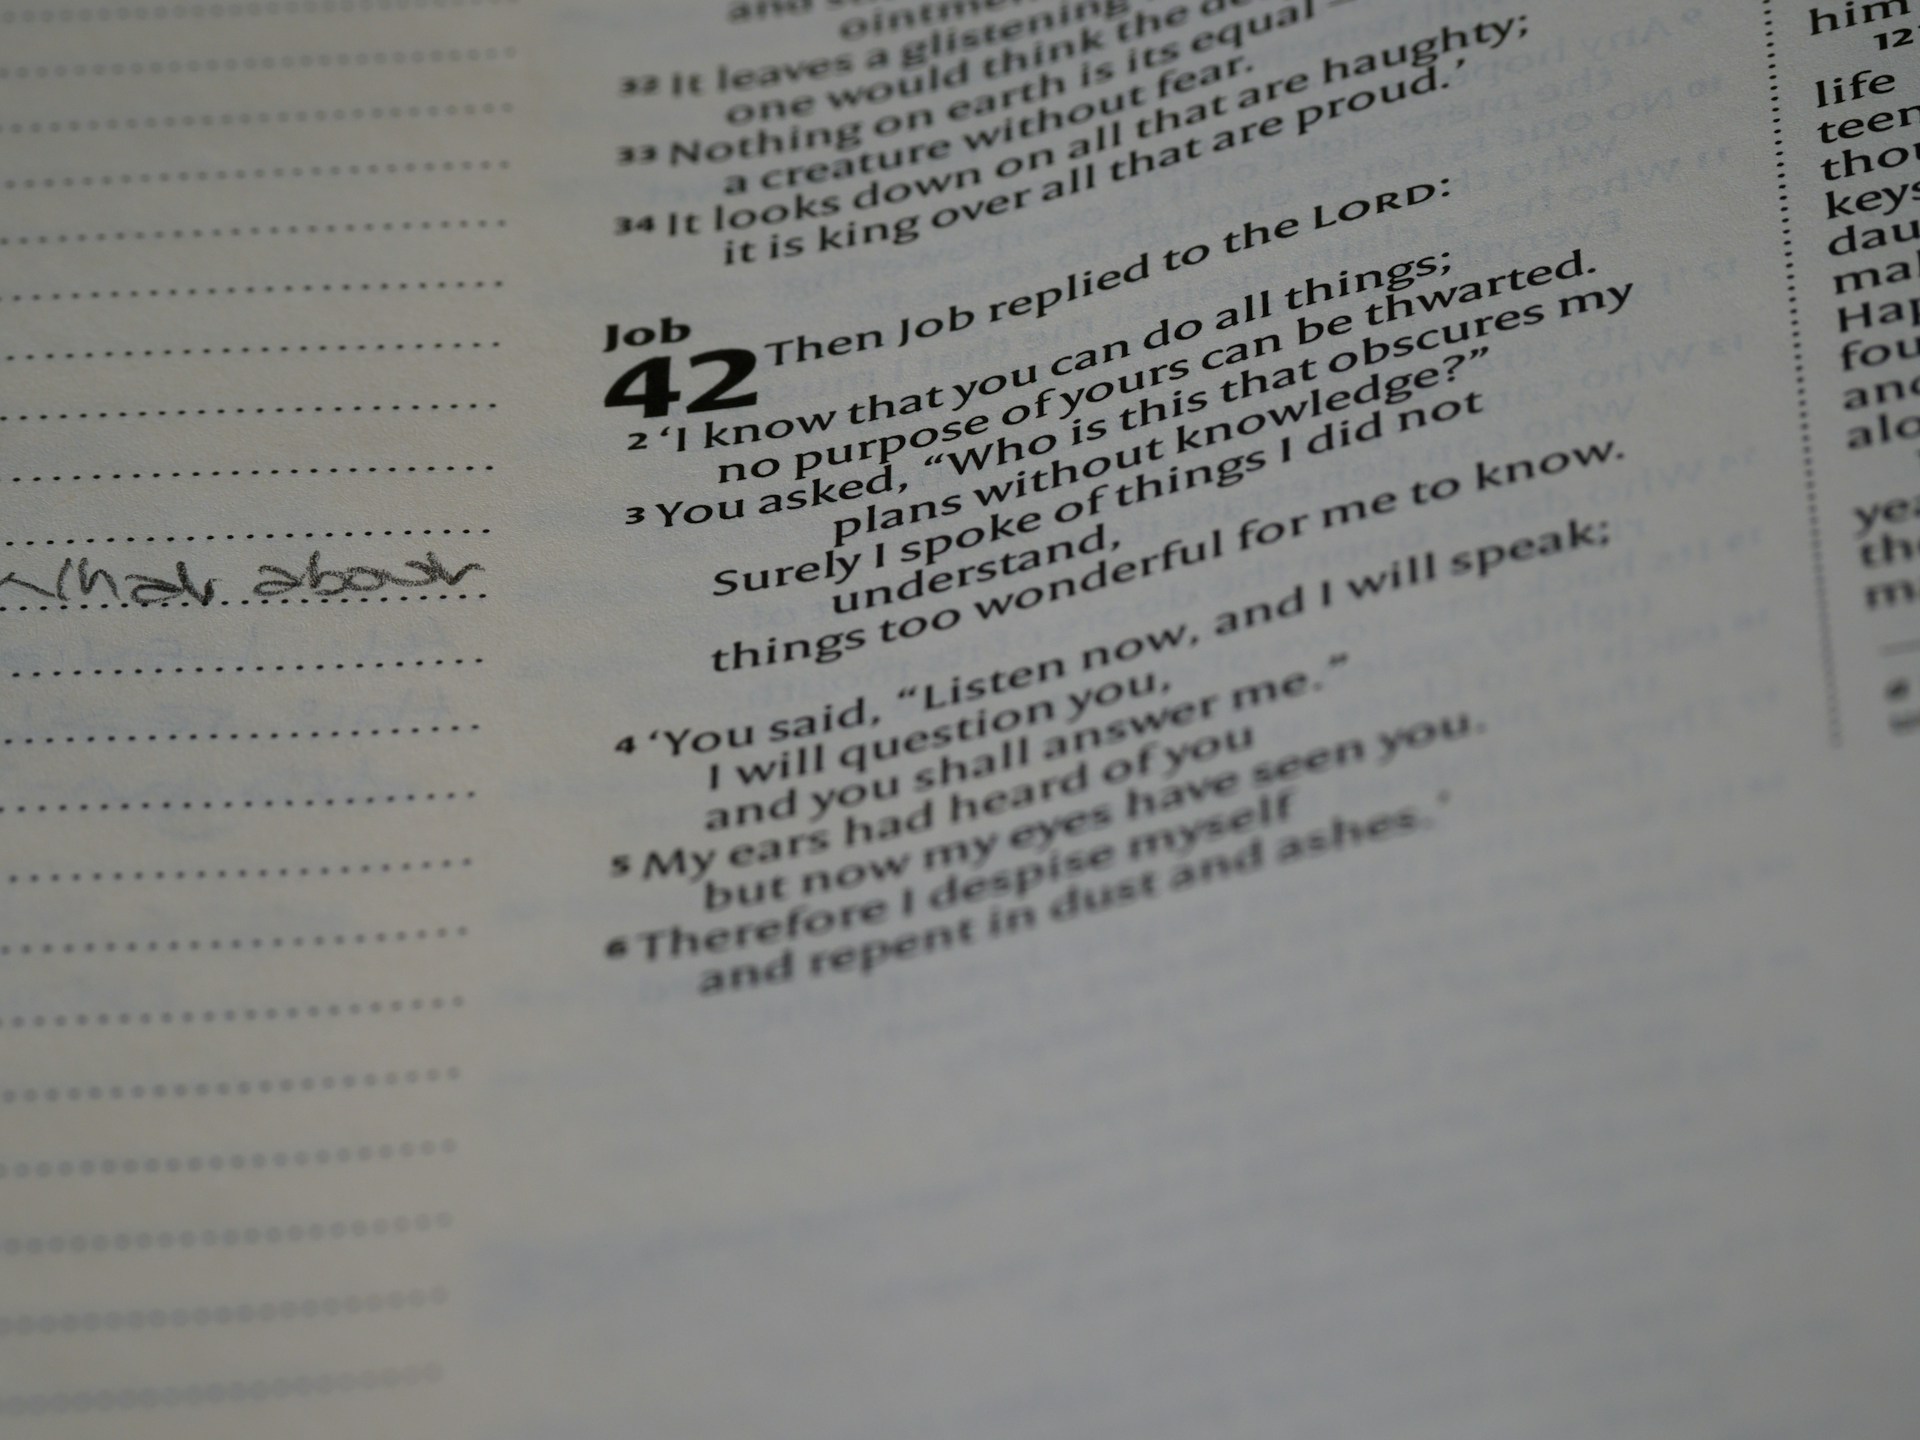 ointment
32 It leaves a glistening
one would think the
33 Nothing on earth is its equal –
a creature without fear.
34 It looks down on all that are haughty;
it is king over all that are proud.’
Job
42 Then Job replied to the LORD:
2 ‘I know that you can do all things;
no purpose of yours can be thwarted.
3 You asked, “Who is this that obscures my
plans without knowledge?”
Surely I spoke of things I did not
understand,
things too wonderful for me to know.
4 ‘You said, “Listen now, and I will speak;
I will question you,
and you shall answer me.”
5 My ears had heard of you
but now my eyes have seen you.
6 Therefore I despise myself
and repent in dust and ashes.’
What about
him
12
life
teen
thou
keys
dau
mal
Hap
fou
and
alo
yea
the
ma